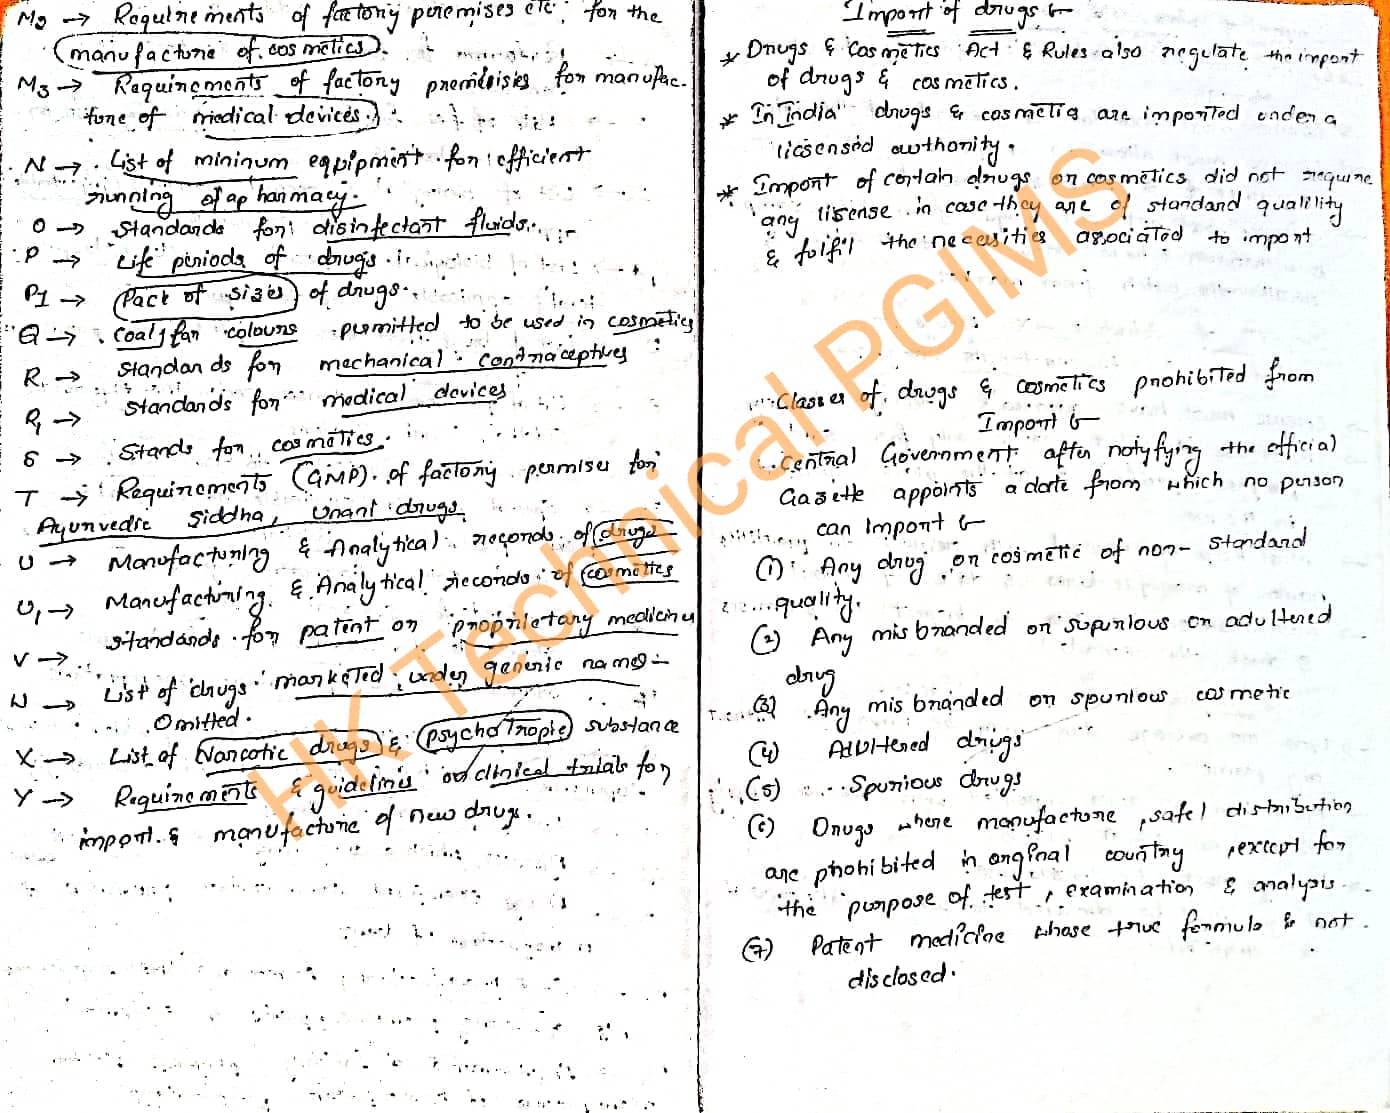 M2 → Requirements of factory premises etc. for the
manufacture of cosmetics.
M3 → Requirements of factory premises for manufac-
ture of medical devices.
N → List of mininum equipment for efficient
running of a pharmacy.
O → Standards for disinfectant fluids.
P → Life periods of drugs.
P1 → Pack of sizes of drugs.
Q → Coal tar colours permitted to be used in cosmetics
R → Standards for mechanical contraceptives
R1 → Standards for medical devices
S → Stands for cosmetics.
T → Requirements (GMP) of factory permises for
Ayurvedic Siddha, Unani drugs
U → Manufacturing & Analytical records of drugs
U1 → Manufacturing & Analytical records of cosmetics
V → Standards for patent or proprietary medicines
W → List of drugs marketed under generic names -
Omitted.
X → List of Narcotic drugs & psychotropic substance
Y → Requirements & guidelines on clinical trials for
import & manufacture of new drugs.
Import of drugs
* Drugs & Cosmetics Act & Rules also regulate the import
of drugs & cosmetics.
* In India drugs & cosmetics are imported under a
licsensed authority.
* Import of certain drugs or cosmetics did not require
any lisense in case they are of standard qualility
& fulfil the necessities associated to import
Classes of drugs & cosmetics prohibited from
Import
Central Government after notyfying the official
Gazette appoints a date from which no person
can import
(1) Any drug or cosmetic of non-standard
quality.
(2) Any misbranded or supurious or adultered
drug
(3) Any misbranded or spurious cosmetic
(4) Adultered drugs
(5) Spurious drugs
(6) Drugs where manufacture, safe/distribution
are phohibited in orginal country, except for
the purpose of test, examination & analysis.
(7) Patent medicine whose true formula is not
disclosed.
HK Technical PGIMS